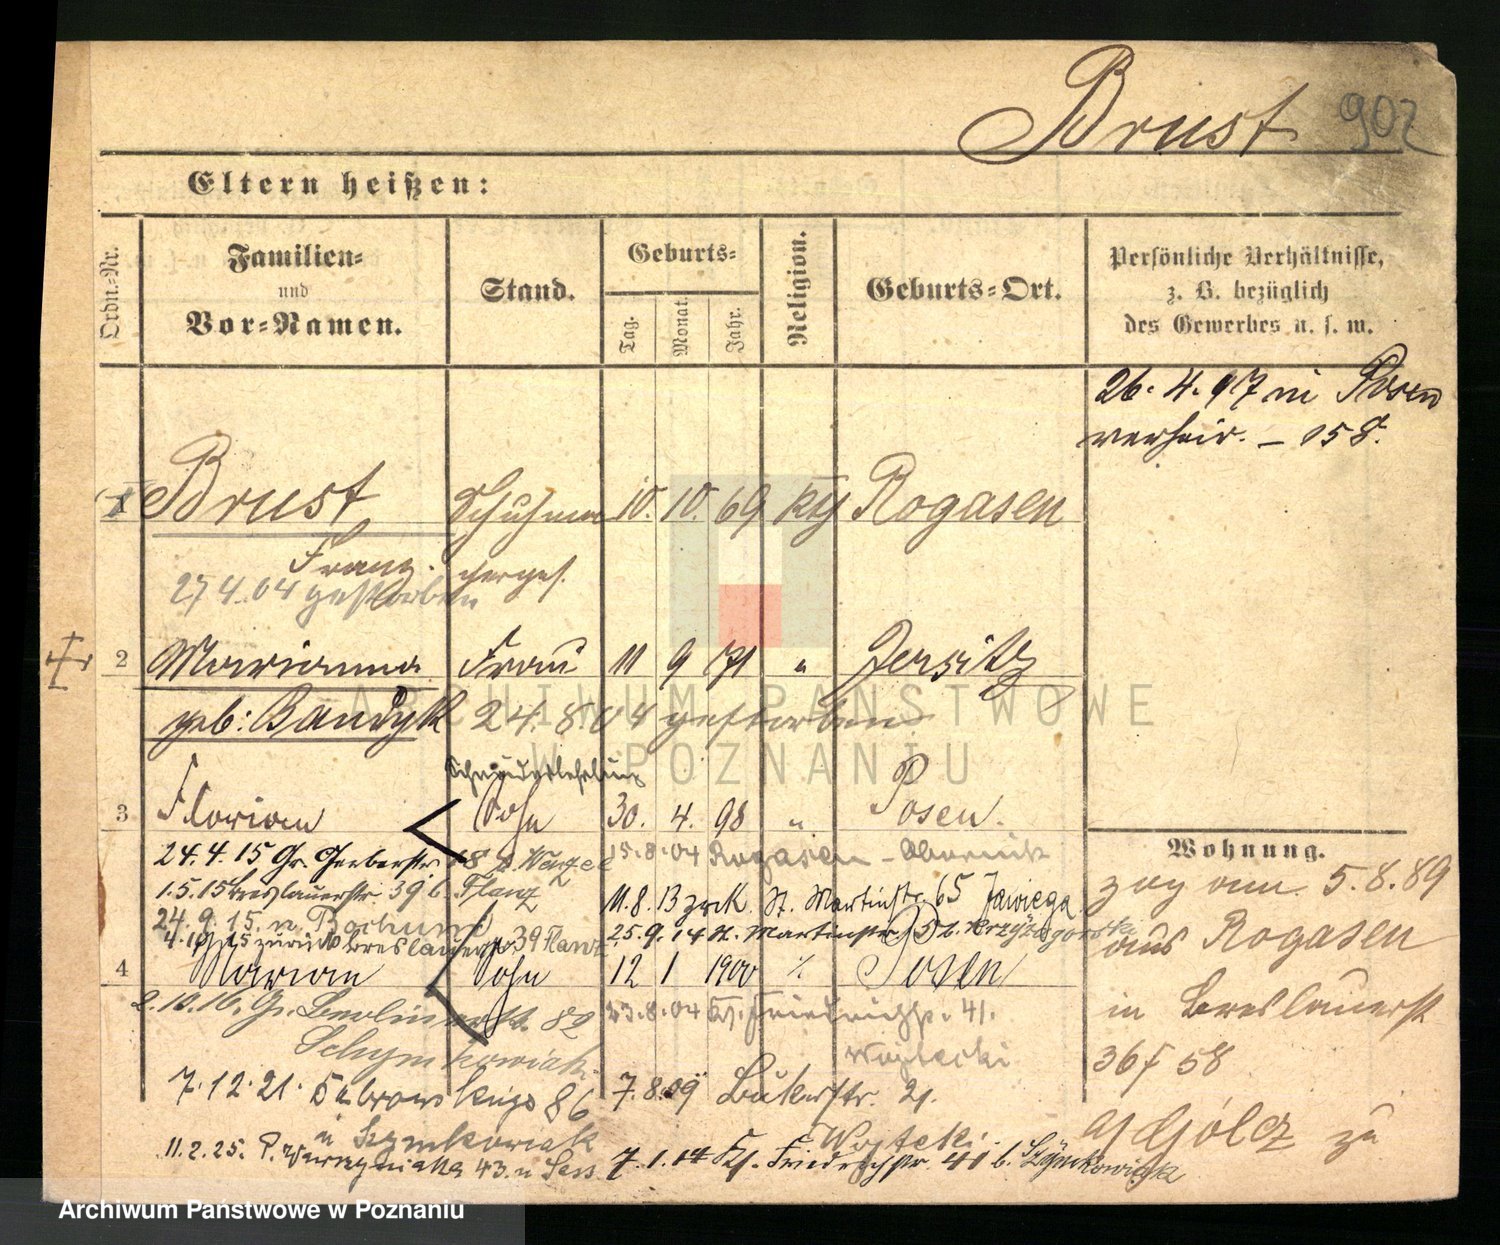 Brust 902
Eltern heißen:
Ordn.-Nr.
Familien-
und
Vor-Namen.
Stand.
Geburts-
Tag. Monat. Jahr.
Religion.
Geburts-Ort.
Persönliche Verhältnisse,
z. B. bezüglich
des Gewerbes u. s. w.
26. 4. 97 in Posen
verheir. – 158.
1 Brust Schuhma 10. 10. 69 kth Rogasen
Franz. cherges.
27 4. 04 gestorben
2 Marianna Frau 11 9 71 " Jersitz
geb: Bandyk 24. 8. 04 gestorben
3 Florian Sohn 30. 4. 98 " Posen.
24. 4. 15 Gr. Gerberstr. 18 b. Wenzel 15. 8. 04 Rogasen - Obornik
1. 5. 15 Breslauerstr. 39 b. Flanz 11. 8. 13 zrck. St. Martinstr. 65 Jawiega
24. 9. 15. n. Bochum
zurück Breslauerstr. 39 25. 9. 14 St. Martinstr.
4 Marian Sohn 12 1 1900 Posen
2. 10. 16. Gr. Berlinerstr. 82 23. 8. 04 Ks. Friedrichstr. 41.
Schymkowiak. Wojtecki
7. 12. 21. Dabrowskiego 86 7. 8. 09 Bukerstr. 21.
u Szymkowiak Wojtecki.
11. 2. 25. 43. u 7. 1. 14 Ks. Friedrichstr. 41 b. Szymkowiak
Wohnung.
zog am 5. 8. 89
aus Rogasen
in Breslauerst
36 f 58
Gólcz zu
ARCHIWUM PAŃSTWOWE
W POZNANIU
Archiwum Państwowe w Poznaniu